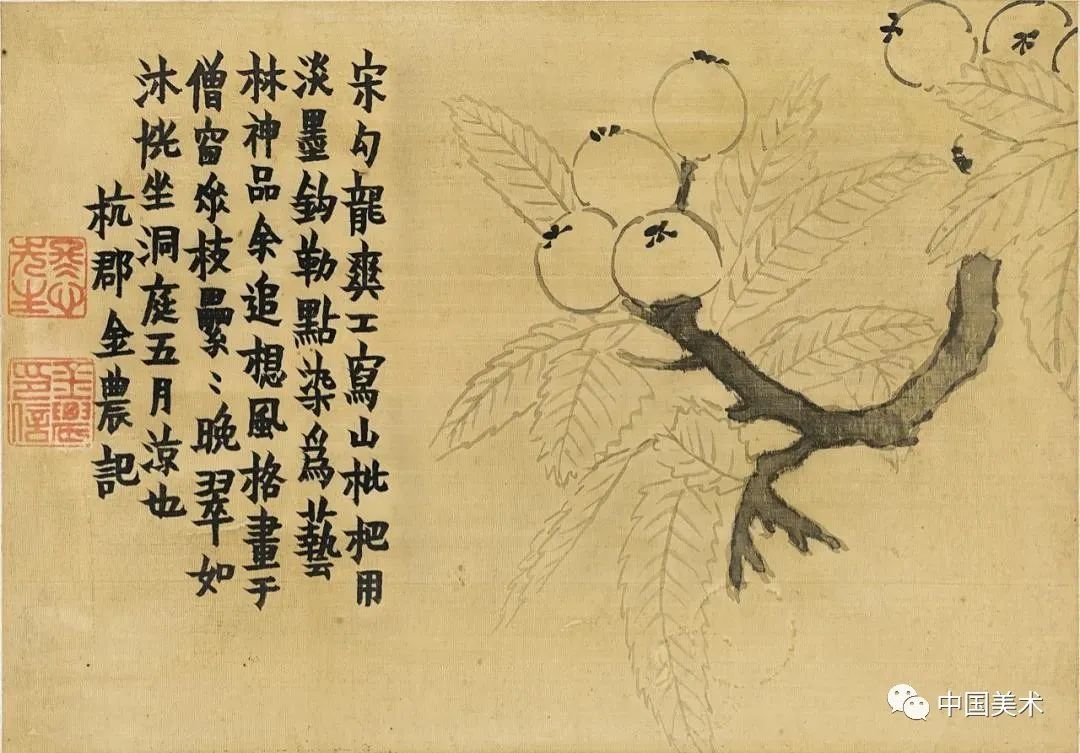 宋勾龍爽工寫山枇杷用
淡墨鈎勒點染爲藝
林神品余追想風格畫于
僧窗衆枝纍〻晚翠如
沐恍坐洞庭五月涼也
杭郡金農記
冬心先生
金農印信
中国美术